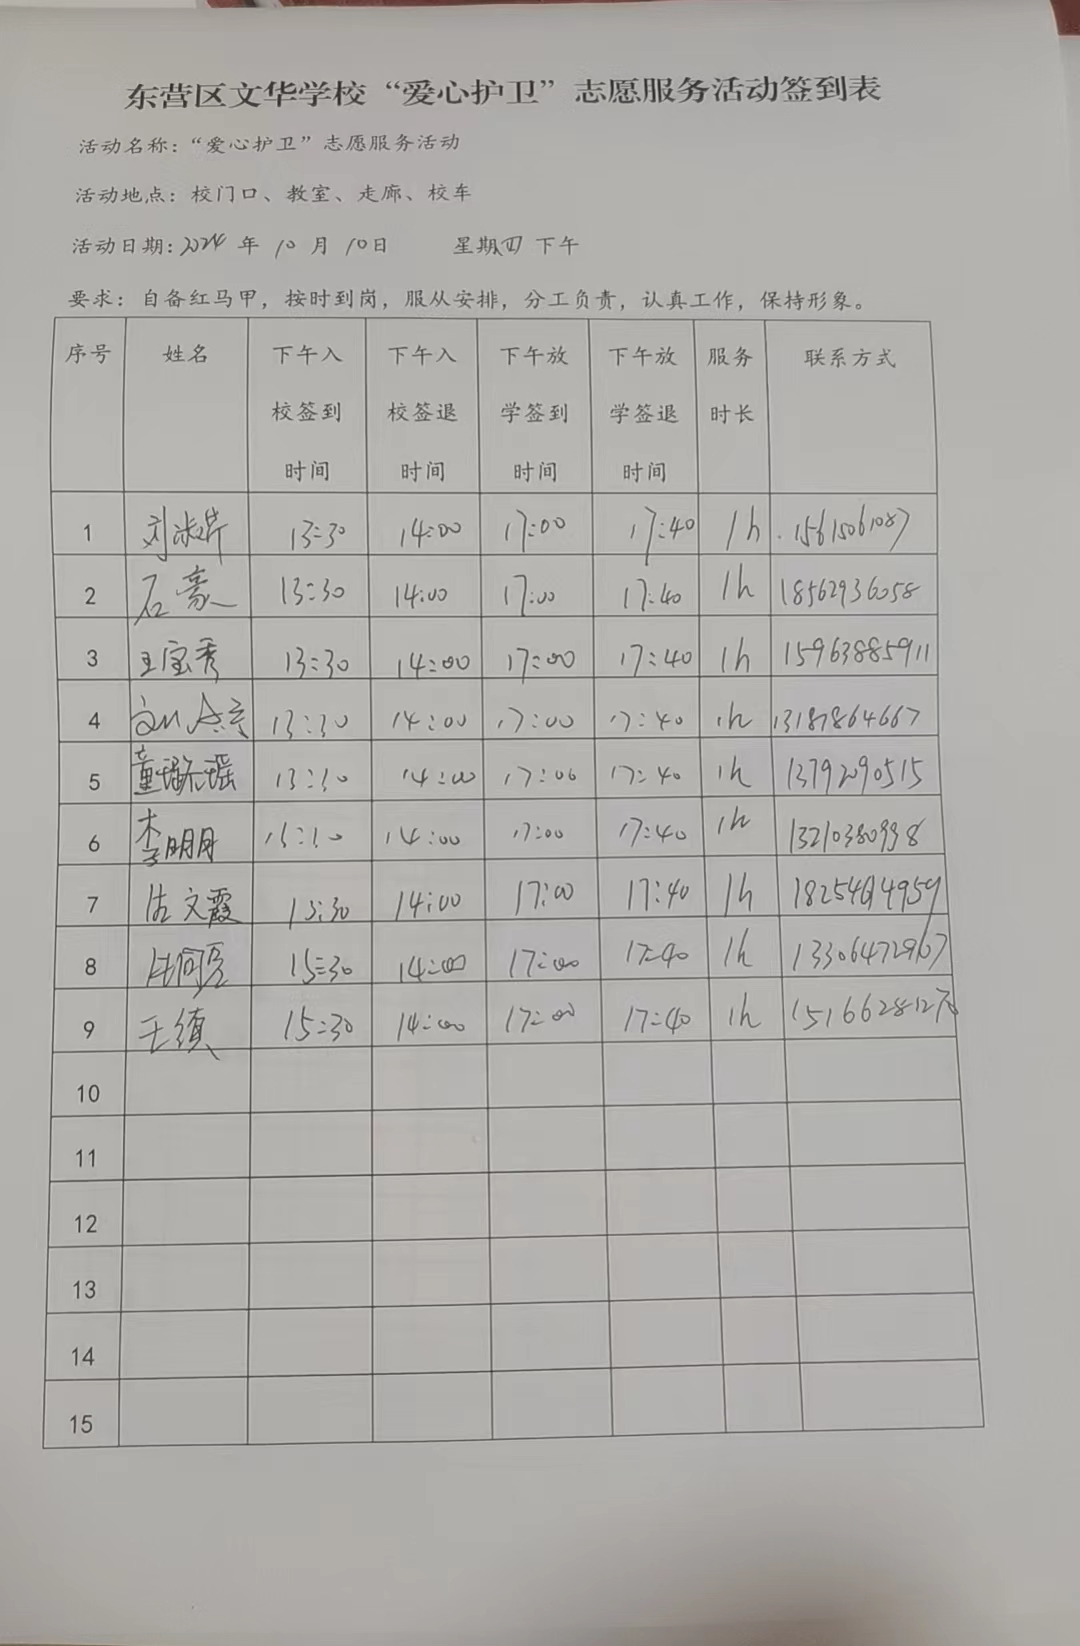 东营区文华学校“爱心护卫”志愿服务活动签到表
活动名称：“爱心护卫”志愿服务活动
活动地点：校门口、教室、走廊、校车
活动日期：2024 年 10 月 10日 星期四 下午
要求：自备红马甲，按时到岗，服从安排，分工负责，认真工作，保持形象。
序号 姓名 下午入校签到时间 下午入校签退时间 下午放学签到时间 下午放学签退时间 服务时长 联系方式
1 13:30 14:00 17:00 17:40 1h 15615061087
2 石豪 13:30 14:00 17:00 17:40 1h 18562936058
3 王宝秀 13:30 14:00 17:00 17:40 1h 15963885911
4 13:30 14:00 17:00 17:40 1h 13187864667
5 13:30 14:00 17:00 17:40 1h 13792090515
6 李明月 14:00 17:00 17:40 1h
7 文霞 13:30 14:00 17:00 17:40 1h
8 15:30 14:00 17:00 17:40 1h 13306472967
9 15:30 14:00 17:00 17:40 1h
10
11
12
13
14
15